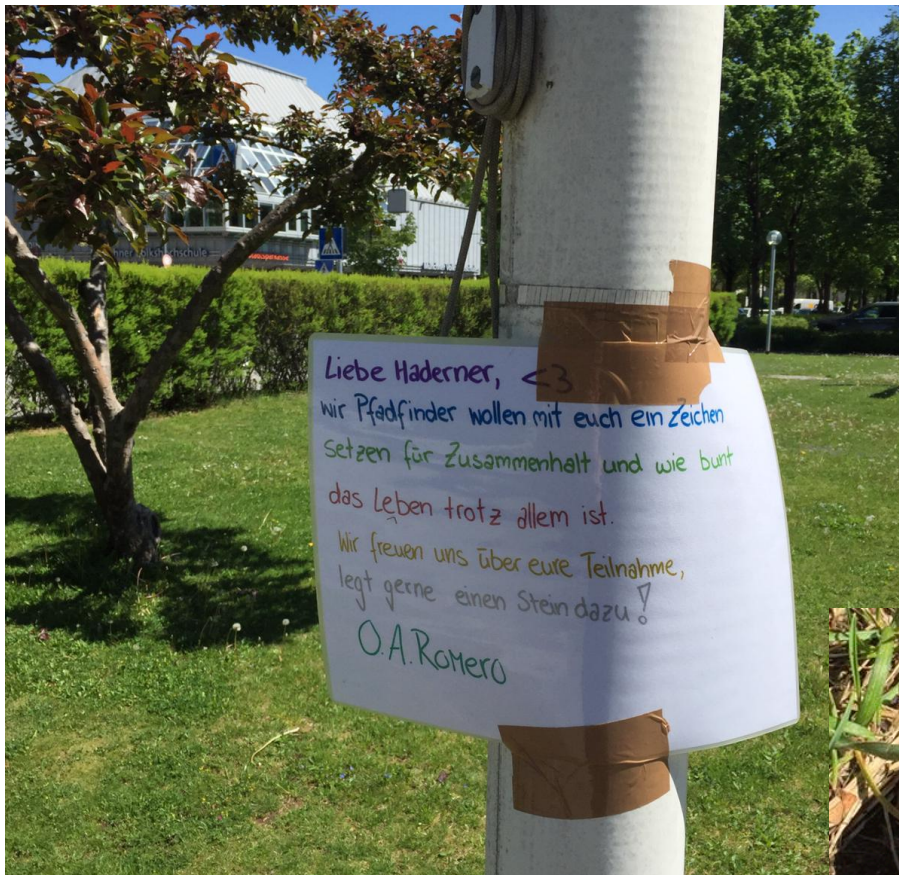 Volkshochschule
Liebe Haderner, <3
wir Pfadfinder wollen mit euch ein Zeichen
setzen für Zusammenhalt und wie bunt
das Leben trotz allem ist.
Wir freuen uns über eure Teilnahme,
legt gerne einen Stein dazu!
O.A.Romero